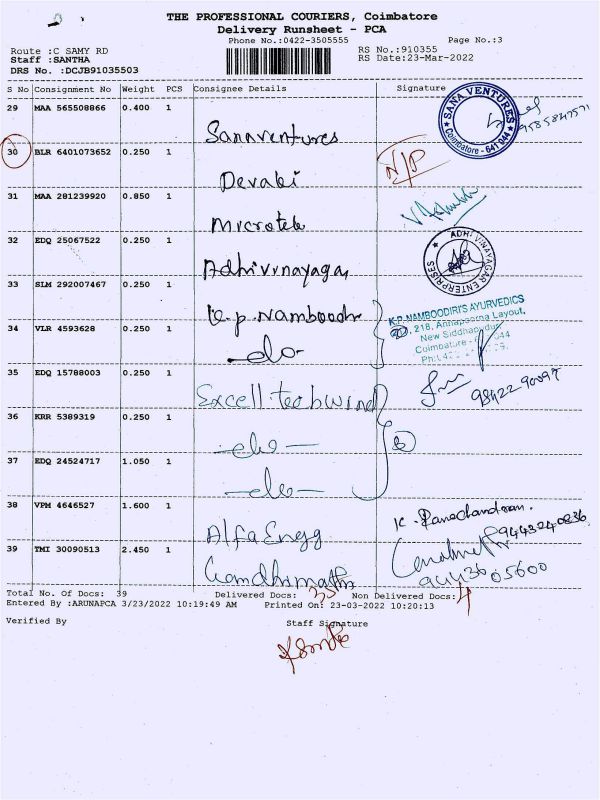 THE PROFESSIONAL COURIERS, Coimbatore
Delivery Runsheet - PCA
Phone No.:0422-3505555 Page No.:3
Route :C SAMY RD RS No.:910355
Staff :SANTHA RS Date:23-Mar-2022
DRS No. :DCJB91035503
S No Consignment No Weight PCS Consignee Details Signature
29 MAA 565508866 0.400 1 Sanaventures
SANA VENTURES
Coimbatore - 641 044
30 BLR 6401073652 0.250 1 Devaki N/P
31 MAA 281239920 0.850 1 Microtek
32 EDQ 25067522 0.250 1 Adhivinayagar
ADHI VINAYAGAR ENTERPRISES
33 SLM 292007467 0.250 1 K.p. Namboodri
K.P. NAMBOODIRI'S AYURVEDICS
218, Annapoorna Layout,
New Siddhapudur
Coimbatore - 044
34 VLR 4593628 0.250 1 -do-
35 EDQ 15788003 0.250 1 Excell techwind 98422 90097
36 KRR 5389319 0.250 1 -do-
37 EDQ 24524717 1.050 1 -do-
38 VPM 4646527 1.600 1 Alfa Engg K. Ramachandran.
9443240836
39 TMI 30090513 2.450 1 Gandhimathi
9443605600
Total No. Of Docs: 39 Delivered Docs: 35 Non Delivered Docs: 4
Entered By :ARUNAPCA 3/23/2022 10:19:49 AM Printed On: 23-03-2022 10:20:13
Verified By Staff Signature